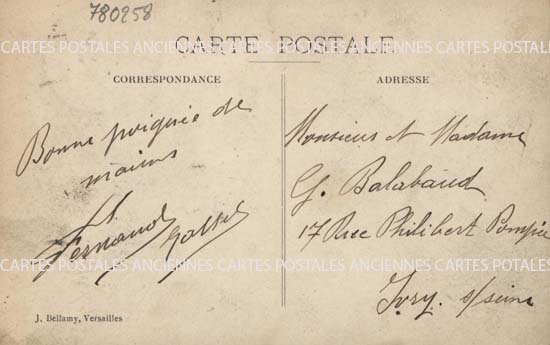 780258
CARTE POSTALE
CARTES POSTALES ANCIENNES CARTES POSTALES ANCIENNES CARTES POSTALES
CORRESPONDANCE
ADRESSE
Bonne poignée de
mains
Fernand
Monsieur et Madame
G. Balabaud
17 Rue Philibert Pompée
Ivry s/seine
CARTES POSTALES ANCIENNES CARTES POSTALES ANCIENNES CARTES POTALES
J. Bellamy, Versailles